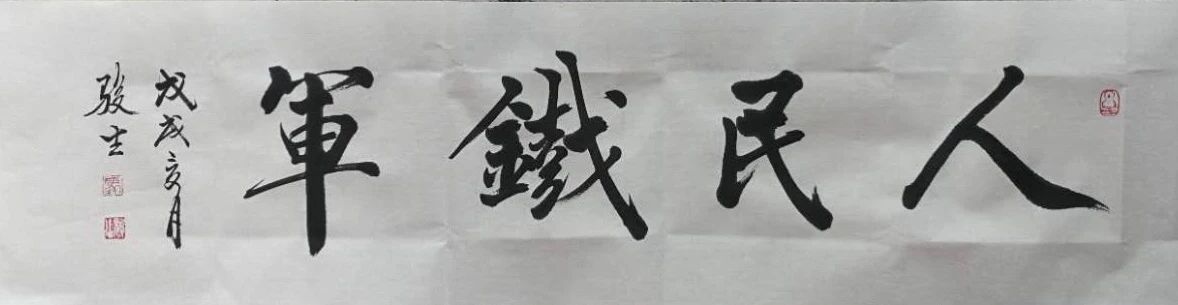 人民鐵軍
戊戌亥月
駿生